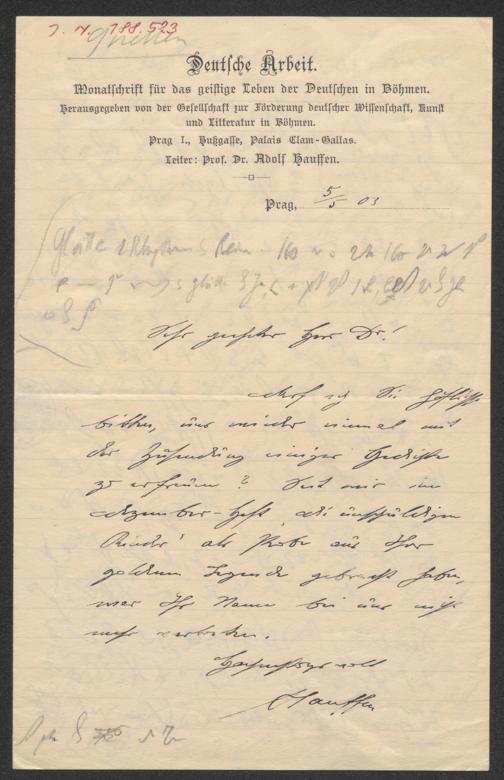 J. N. 188.523
Deutsche Arbeit.
Monatschrift für das geistige Leben der Deutschen in Böhmen.
Herausgegeben von der Gesellschaft zur Förderung deutscher Wissenschaft, Kunst
und Litteratur in Böhmen.
Prag I., Hußgasse, Palais Clam-Gallas.
Leiter: Prof. Dr. Adolf Hauffen.
Prag, 5/5 03
Sehr geehrter Herr Dr!
Darf ich Sie höflichst
bitten, uns wieder einmal mit
der Zusendung einiger Gedichte
zu erfreuen? Seit wir im
Dezember-Heft „die unschuldigen
Kinder" als Probe aus Ihrer
goldenen Legende gebracht haben,
war Ihr Name bei uns nicht
mehr vertreten.
Hochachtungsvoll
AHauffen